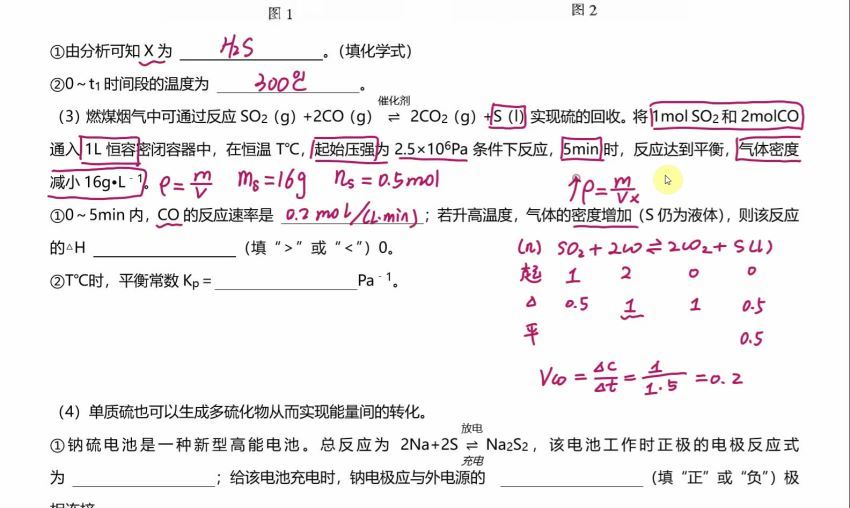 图 1 图 2
①由分析可知 X 为 H₂S 。（填化学式）
②0～t₁ 时间段的温度为 300℃ 。
（3）燃煤烟气中可通过反应 SO₂（g）+2CO（g） 催化剂 ⇌ 2CO₂（g）+S（l）实现硫的回收。将 1mol SO₂ 和 2molCO
通入 1L 恒容密闭容器中，在恒温 T℃，起始压强为 2.5×10⁶Pa 条件下反应，5min 时，反应达到平衡，气体密度
减小 16g•L⁻¹。 ρ=m/V mₛ=16g nₛ=0.5mol ↑ρ=m/Vx
①0～5min 内，CO 的反应速率是 0.2 mol/(L·min) ；若升高温度，气体的密度增加（S 仍为液体），则该反应
的△H （填“>”或“<”）0。 (n) SO₂+2CO⇌2CO₂+S(l)
起 1 2 0 0
②T℃时，平衡常数 Kp＝ Pa⁻¹。
△ 0.5 1 1 0.5
平 0.5
Vco=△c/△t=1/1·5=0.2
（4）单质硫也可以生成多硫化物从而实现能量间的转化。
①钠硫电池是一种新型高能电池。总反应为 2Na+2S 放电 ⇌ 充电 Na₂S₂，该电池工作时正极的电极反应式
为 ；给该电池充电时，钠电极应与外电源的 （填“正”或“负”）极